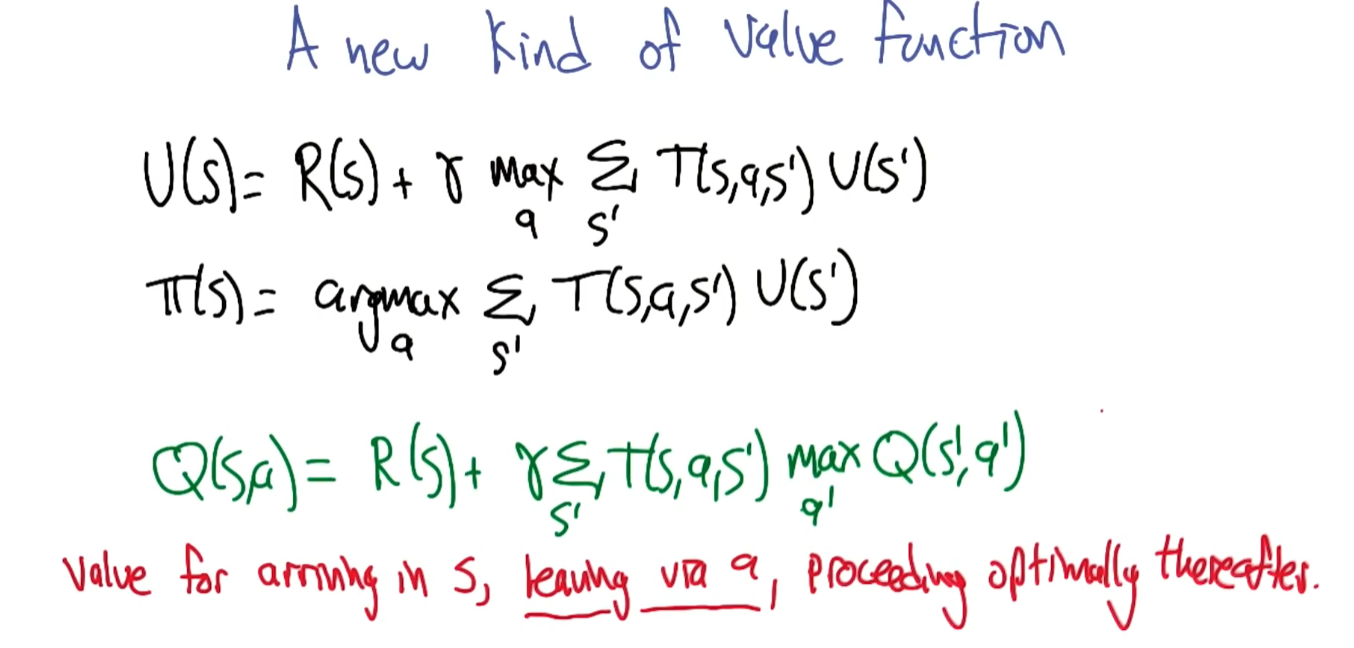 A new kind of value function
U(s) = R(s) + γ max Σ T(s,a,s') U(s')
a s'
π(s) = argmax Σ T(s,a,s') U(s')
a s'
Q(s,a) = R(s) + γ Σ T(s,a,s') max Q(s',a')
s' a'
Value for arriving in s, leaving via a, proceeding optimally thereafter.